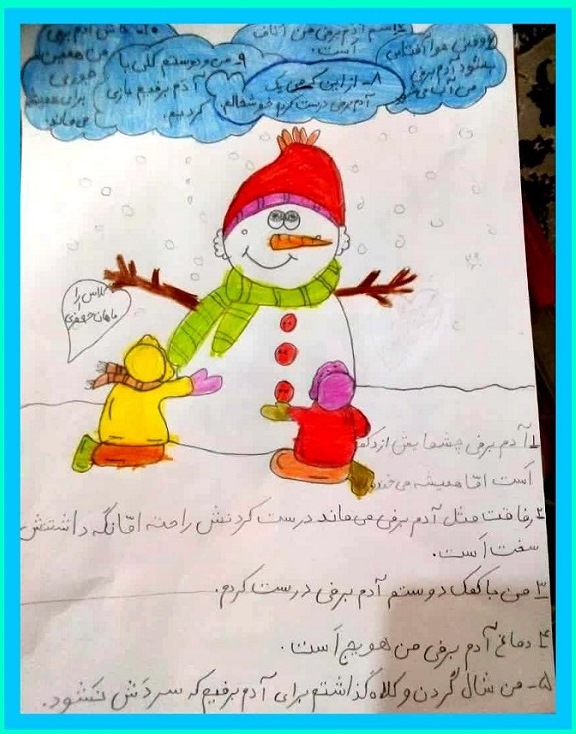 ۱ آدم برفی چشمایش از دکمه
است امّا همیشه می‌خندد
۲ رفاقت مثل آدم برفی می‌ماند درست کردنش راحته امّا نگه داشتنش
سخت است.
۳ من با کمک دوستم آدم برفی درست کردم.
۴ دماغ آدم برفی من هویج است.
۵- من شال گردن و کلاه گذاشتم برای آدم برفیم که سردش نشود.
۶ اسم آدم برفی من
است.
۷ وقتی هوا آفتابی
میشود آدم برفی
من آب می
۸- از این که من یک
آدم برفی درست کردم خوشحالم.
۹- من و دوستم کلی با
آدم برفیم بازی
کردیم.
۱۰- کاش آدم برفی
من همین
جوری
برای همیشه
می‌ماند.
کلاس را
ماهان جعفری